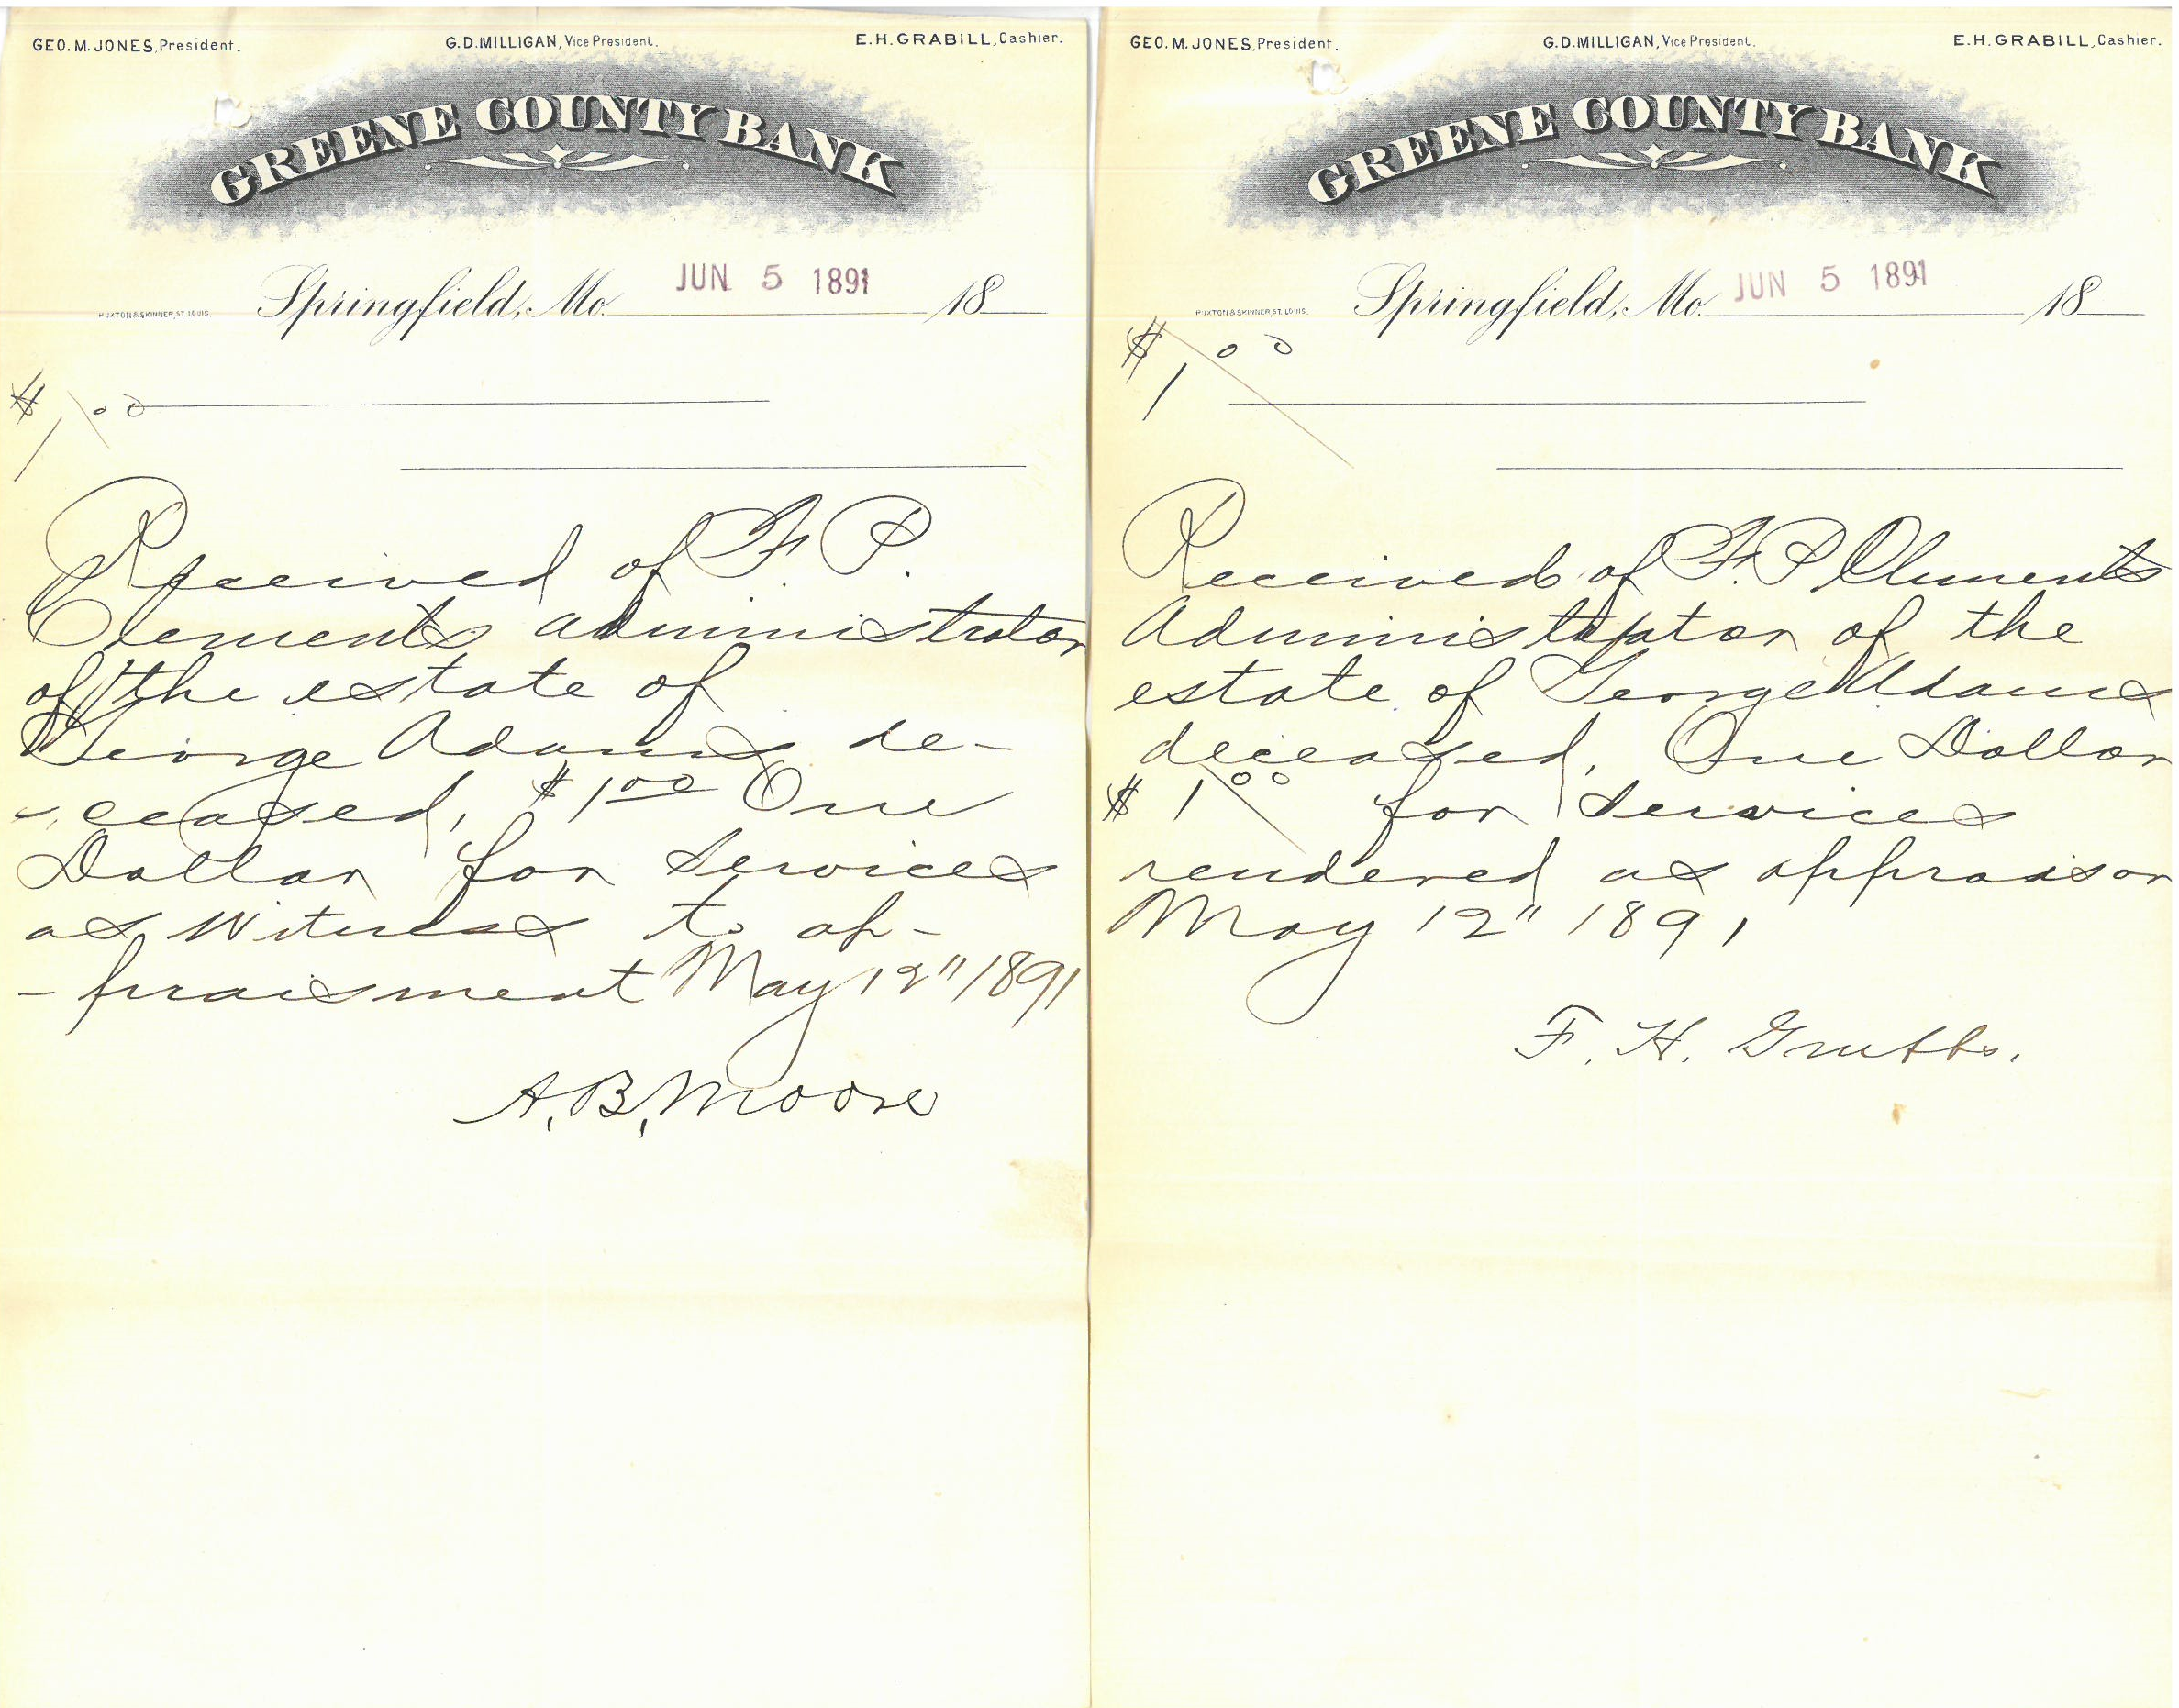 GEO. M. JONES, President. G. D. MILLIGAN, Vice President. E. H. GRABILL, Cashier.
GREENE COUNTY BANK
JUN 5 1891
BUXTON & SKINNER, ST. LOUIS. Springfield, Mo. 18
$1.00
Received of F. P.
Clements administrator
of the estate of
George Adams de-
- ceased, $1.00 One
Dollar for services
as Witness to ap-
- praisment May 12" 1891
A. B. Moore
GEO. M. JONES, President. G. D. MILLIGAN, Vice President. E. H. GRABILL, Cashier.
GREENE COUNTY BANK
JUN 5 1891
BUXTON & SKINNER, ST. LOUIS. Springfield, Mo. 18
$1.00
Received of F. P Clements
Administrator of the
estate of George Adams
deceased, One Dollar
$1.00 for services
rendered as appraisor
May 12" 1891
F. H. Grubbs.